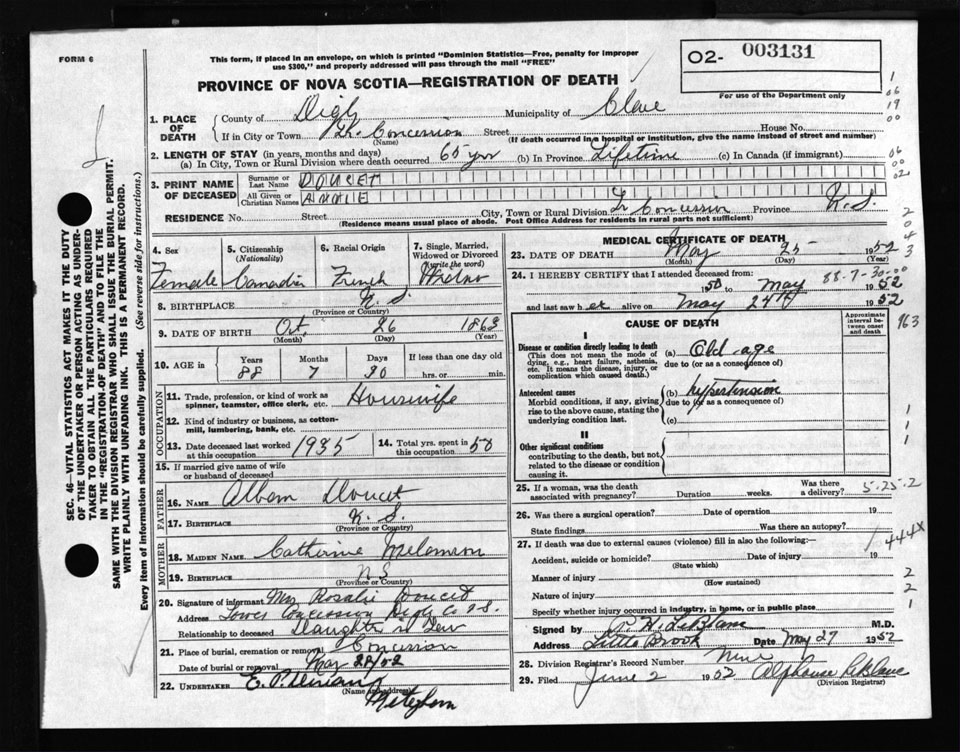 FORM 6
This form, if placed in an envelope, on which is printed "Dominion Statistics—Free, penalty for improper
use $300," and properly addressed will pass through the mail "FREE"
02- 003131
For use of the Department only
PROVINCE OF NOVA SCOTIA—REGISTRATION OF DEATH
1. PLACE OF DEATH
County of Digby Municipality of Clare
If in City or Town Concession Street House No.
(Name) (If death occurred in a hospital or institution, give the name instead of street and number)
2. LENGTH OF STAY (in years, months and days)
(a) In City, Town or Rural Division where death occurred 65 yrs (b) In Province Lifetime (c) In Canada (if immigrant)
3. PRINT NAME OF DECEASED
Surname or Last Name DOUCET
All Given or Christian Names ANNIE
RESIDENCE No. Street City, Town or Rural Division Concession Province N.S.
(Residence means usual place of abode. Post Office Address for residents in rural parts not sufficient)
4. Sex Female
5. Citizenship (Nationality) Canadian
6. Racial Origin French
7. Single, Married, Widowed or Divorced (write the word) Widow
8. BIRTHPLACE N.S.
(Province or Country)
9. DATE OF BIRTH Oct. 26 1863
(Month) (Day) (Year)
10. AGE in Years 88 Months 7 Days 30 If less than one day old hrs. or min.
OCCUPATION
11. Trade, profession, or kind of work as spinner, teamster, office clerk, etc. Housewife
12. Kind of industry or business, as cotton-mill, lumbering, bank, etc.
13. Date deceased last worked at this occupation 1935
14. Total yrs. spent in this occupation 50
15. If married give name of wife or husband of deceased
FATHER
16. NAME Doucet
17. BIRTHPLACE N.S.
(Province or Country)
MOTHER
18. MAIDEN NAME Catherine Melanson
19. BIRTHPLACE N.S
(Province or Country)
20. Signature of informant Mrs Rosalie Doucet
Address Lower Concession Digby Co N.S.
Relationship to deceased Daughter in Law
21. Place of burial, cremation or removal Concession
Date of burial or removal May 28/52
22. UNDERTAKER
(Name and address)
Meteghan
MEDICAL CERTIFICATE OF DEATH
23. DATE OF DEATH May 25 1952
(Month) (Day) (Year)
24. I HEREBY CERTIFY that I attended deceased from 88-7-30-00
1950 to May 1952
and last saw her alive on May 24th 1952
CAUSE OF DEATH
Approximate interval between onset and death
I
Disease or condition directly leading to death
(This does not mean the mode of dying, e.g., heart failure, asthenia, etc. It means the disease, injury, or complication which caused death.)
(a) Old age
due to (or as a consequence of)
Antecedent causes
Morbid conditions, if any, giving rise to the above cause, stating the underlying condition last.
(b) hypertension
due to (or as a consequence of)
(c)
II
Other significant conditions
contributing to the death, but not related to the disease or condition causing it.
25. If a woman, was the death associated with pregnancy? Duration weeks. Was there a delivery? 5-25-2
26. Was there a surgical operation? Date of operation 19
State findings Was there an autopsy?
27. If death was due to external causes (violence) fill in also the following:—
444X
Accident, suicide or homicide? Date of injury 19
(State which)
Manner of injury
(How sustained)
Nature of injury
Specify whether injury occurred in industry, in home, or in public place
Signed by P. H. LeBlanc M.D.
Address Little Brook Date May 27 1952
28. Division Registrar's Record Number Nine
29. Filed June 2 1952 Alphonse LeBlanc
(Division Registrar)
SEC. 46—VITAL STATISTICS ACT MAKES IT THE DUTY
OF THE UNDERTAKER OR PERSON ACTING AS UNDER-
TAKER TO OBTAIN ALL THE PARTICULARS REQUIRED
IN THE "REGISTRATION OF DEATH" AND TO FILE THE
SAME WITH THE DIVISION REGISTRAR WHO SHALL ISSUE THE BURIAL PERMIT.
WRITE PLAINLY WITH UNFADING INK. THIS IS A PERMANENT RECORD.
Every item of information should be carefully supplied. (See reverse side for instructions.)
1
06
19
00
06
00
02
2
0
4
3
963
1
1
1
2
2
1